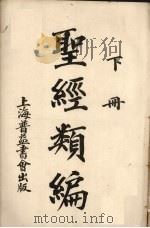 下冊
聖經類編
上海普益書會出版
www.duxiu.com